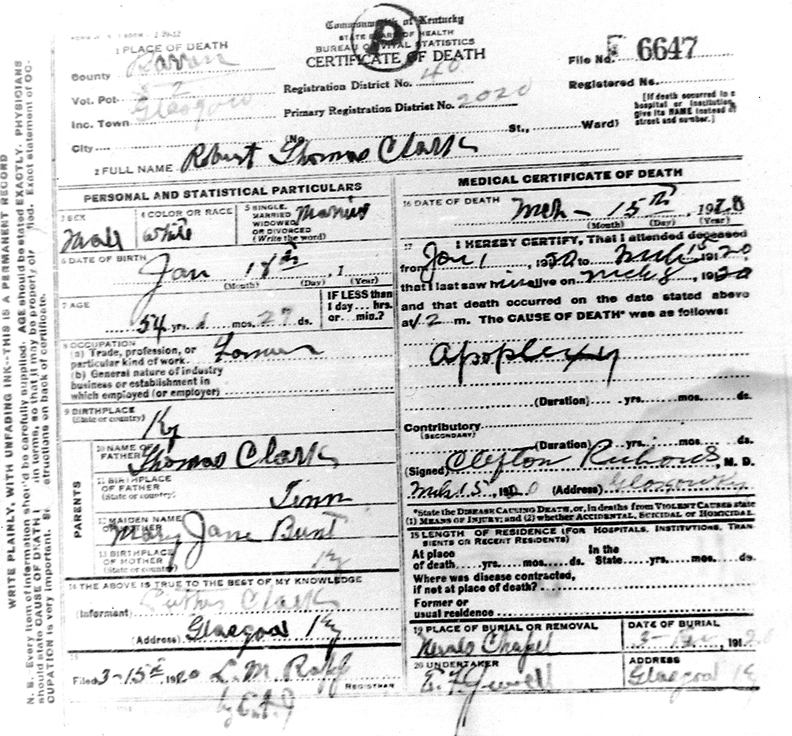 Commonwealth of Kentucky
STATE BOARD OF HEALTH
BUREAU OF VITAL STATISTICS
CERTIFICATE OF DEATH
File No. 6647
1 PLACE OF DEATH
County Barren
Vot. Pct.
Inc. Town Glasgow
City
Registration District No. 40
Primary Registration District No. 2020
Registered No.
(No. St., Ward)
[If death occurred in a
hospital or institution,
give its NAME instead of
street and number.]
2 FULL NAME Robert Thomas Clark
PERSONAL AND STATISTICAL PARTICULARS
3 SEX Male
4 COLOR OR RACE White
5 SINGLE, MARRIED WIDOWED OR DIVORCED (Write the word) Married
6 DATE OF BIRTH Jan 18th, 1
(Month) (Day) (Year)
7 AGE
54 yrs. 1 mos. 27 ds.
IF LESS than
1 day... hrs.
or... min.?
8 OCCUPATION
(a) Trade, profession, or
particular kind of work Farmer
(b) General nature of industry
business or establishment in
which employed (or employer)
9 BIRTHPLACE
(State or country) Ky
PARENTS
10 NAME OF FATHER Thomas Clark
11 BIRTHPLACE
OF FATHER
(State or country) Tenn
12 MAIDEN NAME
OF MOTHER Mary Jane Bunt
13 BIRTHPLACE
OF MOTHER
(State or country) Ky
14 THE ABOVE IS TRUE TO THE BEST OF MY KNOWLEDGE
(Informant) Clark
(Address) Glasgow Ky
15
Filed 3-15th 1920 L. M.
REGISTRAR
MEDICAL CERTIFICATE OF DEATH
16 DATE OF DEATH Mch - 15th, 1920
(Month) (Day) (Year)
17 I HEREBY CERTIFY, That I attended deceased
from Jan 1, 1920 to Mch 15 1920
that I last saw him alive on Mch 8, 1920
and that death occurred on the date stated above
at 12 m. The CAUSE OF DEATH* was as follows:
Apoplexy
(Duration) yrs. mos. ds.
Contributory
(SECONDARY)
(Duration) yrs. mos. ds.
(Signed) Clifton Richards, M. D.
Mch 15, 1920 (Address) Glasgow Ky
*State the DISEASE CAUSING DEATH, or, in deaths from VIOLENT CAUSES state
(1) MEANS OF INJURY; and (2) whether ACCIDENTAL, SUICIDAL or HOMICIDAL
18 LENGTH OF RESIDENCE (FOR HOSPITALS, INSTITUTIONS, TRAN
SIENTS OR RECENT RESIDENTS)
At place of death yrs. mos. ds. In the State yrs. mos. ds.
Where was disease contracted,
if not at place of death?
Former or
usual residence
19 PLACE OF BURIAL OR REMOVAL
Chapel
DATE OF BURIAL
1920
20 UNDERTAKER
E. F. Jewell
ADDRESS
Glasgow Ky
WRITE PLAINLY, WITH UNFADING INK--THIS IS A PERMANENT RECORD
N. B.--Every item of information should be carefully supplied. AGE should be stated EXACTLY. PHYSICIANS
should state CAUSE OF DEATH in terms, so that it may be properly fied. Exact statement of OC-
CUPATION is very important. structions on back of certificate.